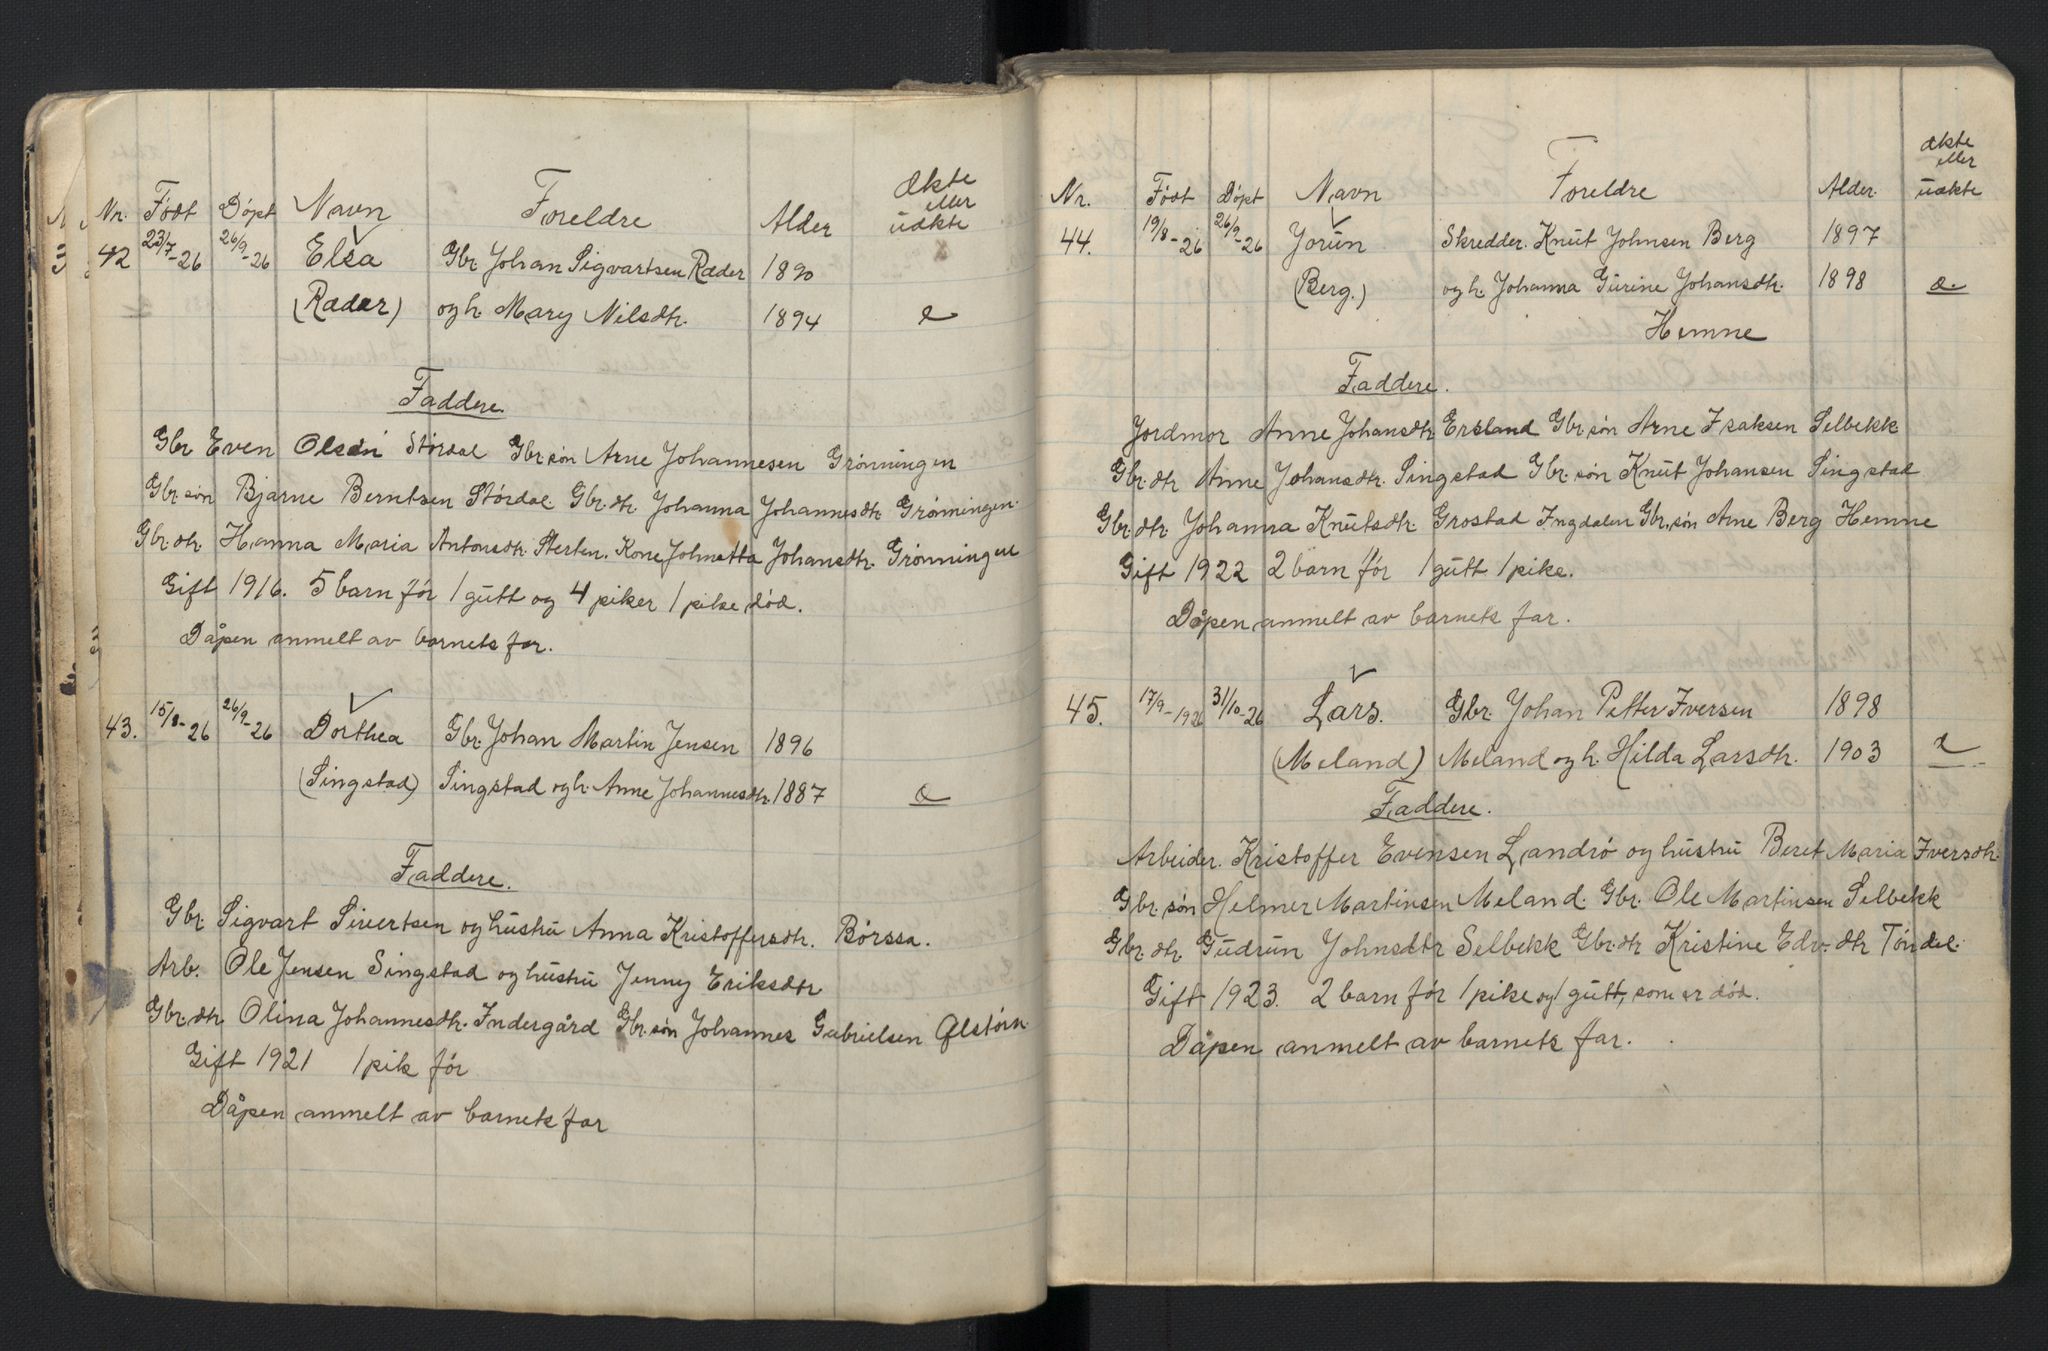 Nr. Født Døpt Navn Foreldre Alder Ækte eller uækte
42 23/7-26 26/9-26 Elsa Gbr. Johan Sigvartsen Ræder 1890
(Ræder) og h. Mary Nilsdtr. 1894 æ
Faddere.
Gbr Even Olsen Størdal Gbr.søn Arne Johannesen Grønningen
Gbr.søn Bjarne Berntsen Størdal. Gbr.dtr. Johanna Johannesdtr. Grønningen.
Gbr.dtr. Hanna Maria Antonsdtr. Sterten. Kone Johnetta Johansdtr. Grønningen
Gift 1916. 5 barn før 1 gutt og 4 piker 1 pike død.
Dåpen anmelt av barnets far.
43. 15/8-26 26/9-26 Dorthea Gbr. Johan Martin Jensen 1896
(Singstad) Singstad og h. Anne Johannesdtr. 1887 æ
Faddere.
Gbr. Sigvart Sivertsen og hustru Anna Kristoffersdtr. Børssa.
Arb. Ole Jensen Singstad og hustru Jenny Eriksdtr
Gbr.dtr. Olina Johannesdtr. Indergård Gbr.søn Johannes Gabrielsen Ølstørn
Gift 1921 1 pik før
Dåpen anmelt av barnets far
Nr. Født Døpt Navn Foreldre Alder. ækte eller uækte
44. 19/8-26 26/9-26 Jorun Skredder. Knut Johnsen Berg 1897
(Berg.) og h. Johanna Gurine Johansdtr. 1898 æ.
Hemne
Faddere.
Jordmor Anne Johansdtr Ersland Gbr.søn Arne Isaksen Selbekk
Gbr.dtr Anne Johansdtr. Singstad Gbr.søn Knut Johansen Singstad
Gbr.dtr. Johanna Knutsdtr. Grostad Ingdalen Gbr.søn Arne Berg Hemne
Gift 1922 2 barn før 1 gutt 1 pike.
Dåpen anmelt av barnets far.
45. 17/9-1926 31/10-26 Lars. Gbr. Johan Petter Iversen 1898
(Meland) Meland og h. Hilda Larsdtr. 1903 æ
Faddere.
Arbeider. Kristoffer Evensen Landrø og hustru Beret Maria Iversdtr.
Gbr.søn Helmer Martinsen Meland. Gbr. Ole Martinsen Selbekk
Gbr.dtr. Gudrun Johnsdtr Selbekk Gbr.dtr Kristine Edv.dtr Tøndel.
Gift 1923. 2 barn før 1 pike og 1 gutt, som er død.
Dåpen anmelt av barnets far.